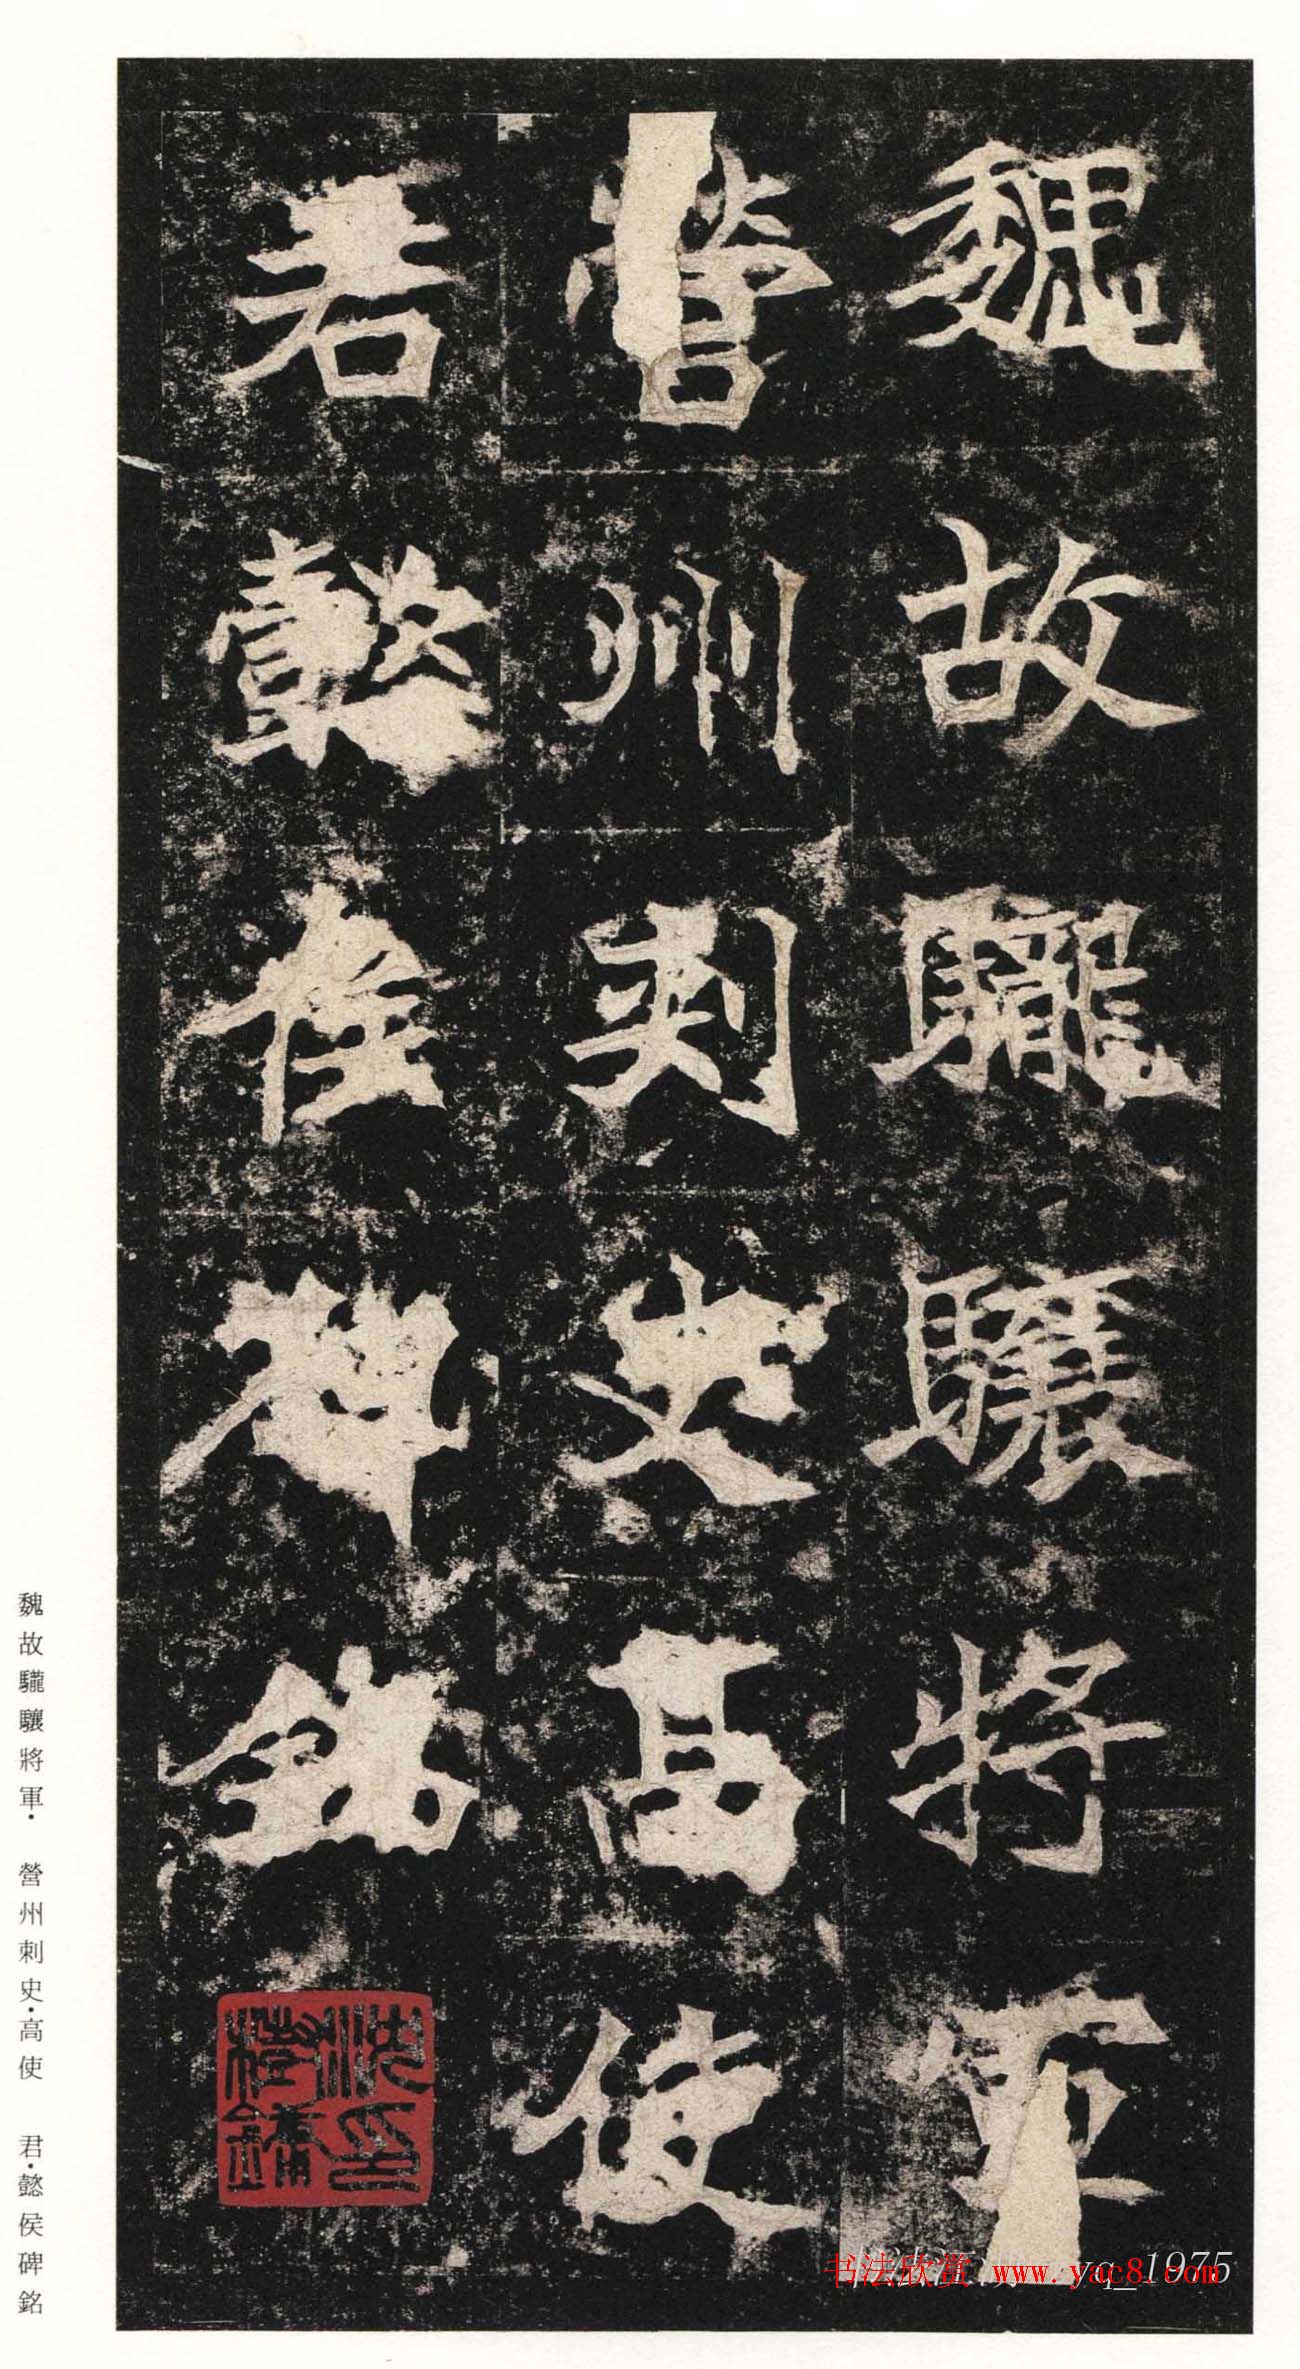 魏故驡驤將軍
營州刺史高使
君懿侯碑銘
魏故驡驤將軍· 營州刺史·高使 君·懿侯碑銘
书法欣赏 www.yac8.com
yq_1975